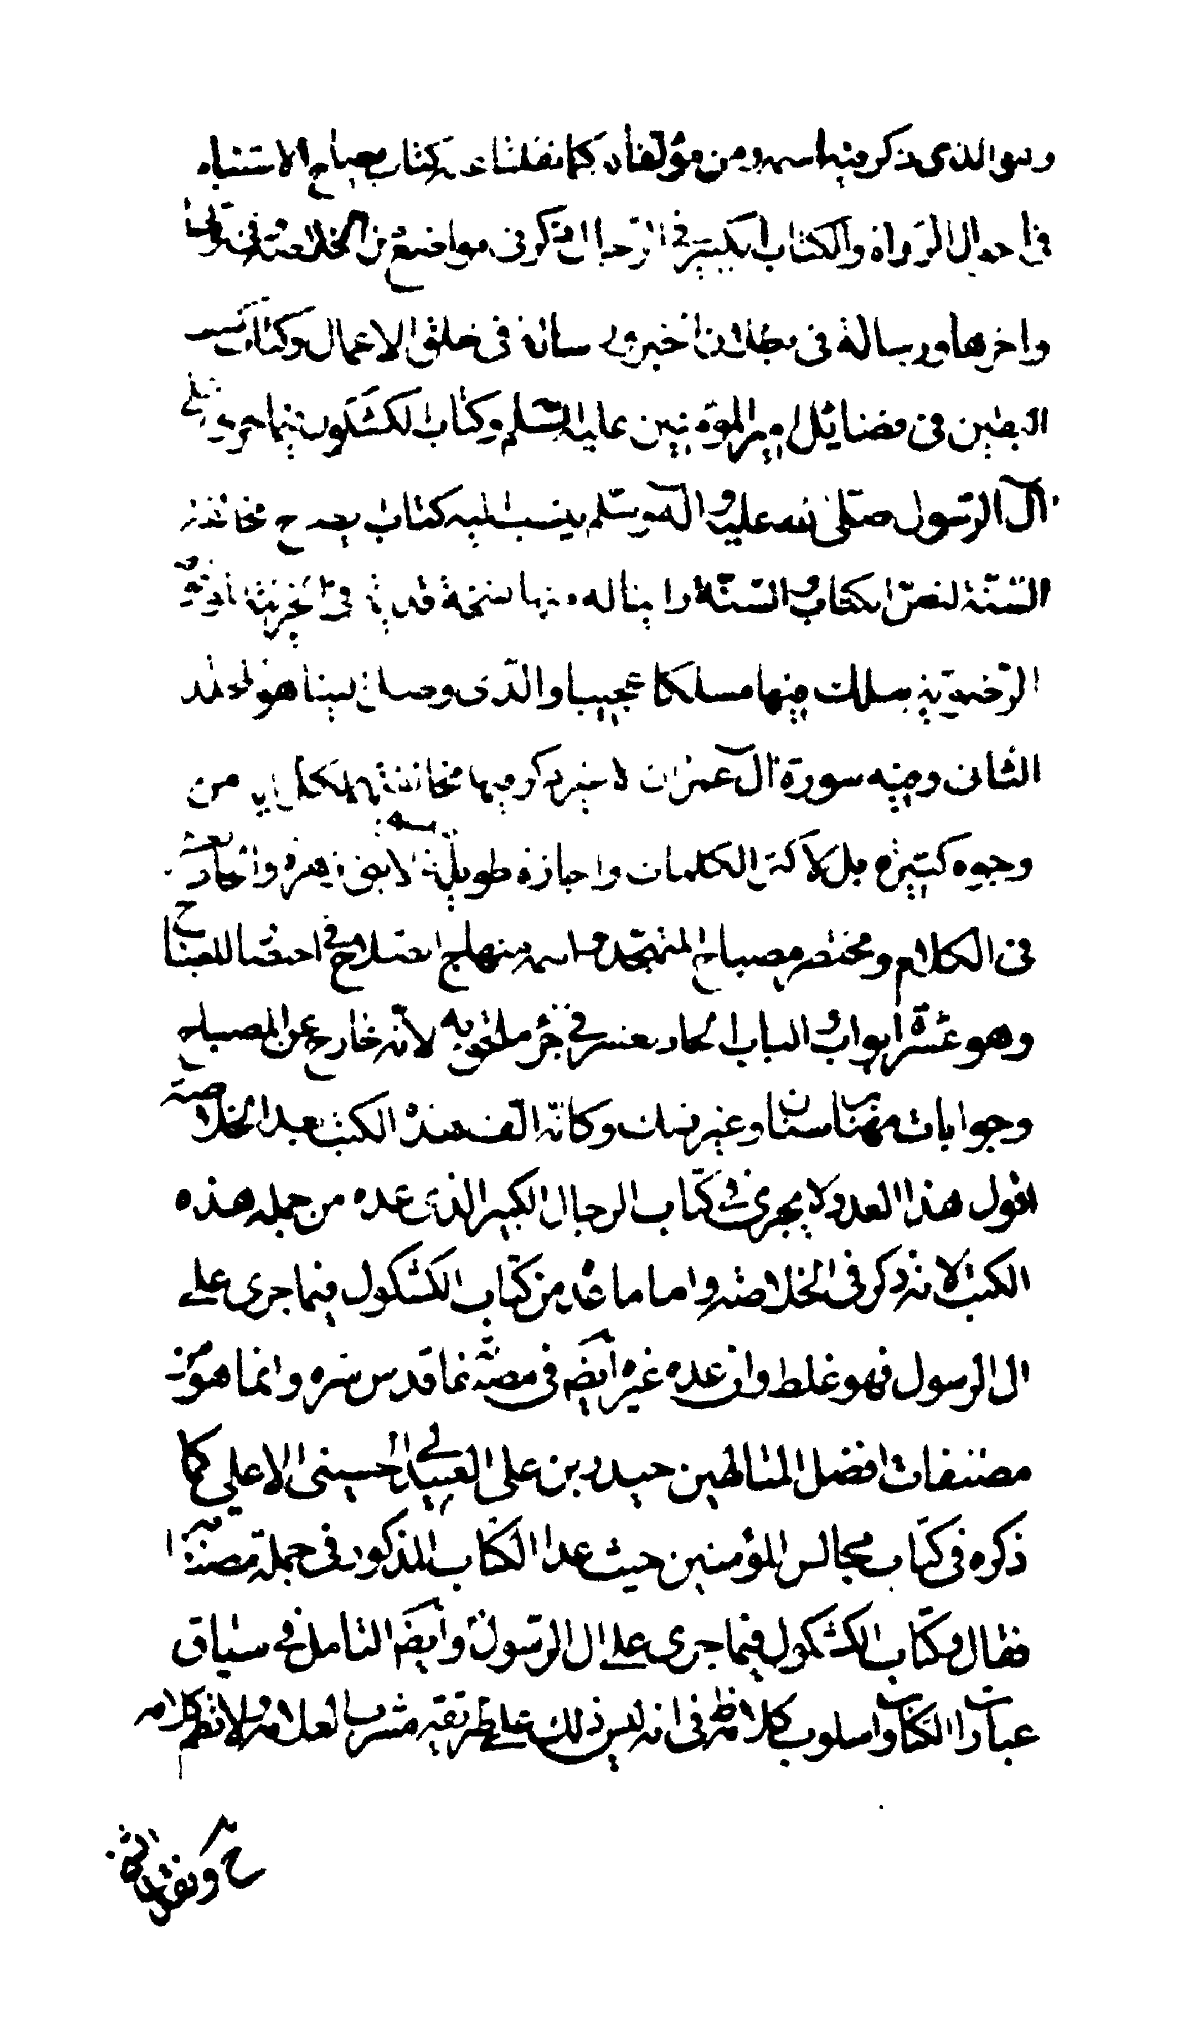 وهو الذى ذكر فيه اسمه ومن مؤلفاته كما نقلنا عنه كتاب ايضاح الاشتباه
فى احوال الرواة والكتاب الكبير فى الرجال المذكور فى مواضع من الخلاصة فى
واخرها ورسالة فى بطلان الجبر ورسالة فى خلق الاعمال وكتاب كشف
اليقين فى فضائل امير المؤمنين عليه السلم وكتاب الكشكول فيما جرى على
آل الرسول صلى الله عليه وآله وسلم ينسب اليه كتاب ايضاح مخالفة
السنة لنص الكتاب والسنة رايناله منها نسخة قديمة فى الخزينة
الرضوية سلك فيها مسلكا عجيبا والذى وصل الينا هو المجلد
الثانى وفيه سورة آل عمران لا غير يذكر فيها مخالفتهم لكل اية من
وجوه كثيرة بل لاكثر الكلمات واجازة طويلة لابنى زهرة والحادى عشر
فى الكلام ومختصر مصباح المتهجد اسمه منهاج الصلاح فى اختصار المصباح
وهو عشرة ابواب والباب الحاديعشر فى جزء ملحق به لانه خارج عن المصباح
وجوابات مهنا بن سنان وغير ذلك وكانه الف هذه الكتب بعد الخلاصة
اقول هذا العدد لا يجرى فى كتاب الرجال الكبير الذى عده من جمله هذه
الكتب لانه ذكر فى الخلاصه واما ما عده من كتاب الكشكول فيما جرى على
ال الرسول فهو غلط وان عده غيره ايضه فى مصنفاته قدس سره وانما هو من
مصنفات افضل المتالهين حيدر بن على العبيدلى الحسينى الاملي كما
ذكره فى كتاب مجالس المؤمنين حيث عد الكتاب المذكور فى جملة مصنفاته
فقال وكتاب الكشكول فيما جرى على ال الرسول وايضه التامل فى سياق
عبارات الكتاب واسلوب كلامه ظ فى انه ليس ذلك على طريقه مشرب العلامه ولا نظم كلامه